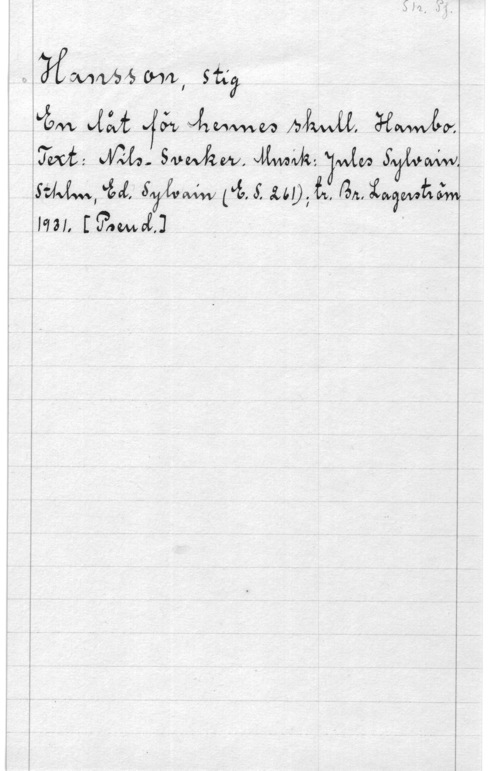 Str. Sj.
Hansson, Stig
En låt för hennes skull. Hambo.
Text: Nils-Sverker. Musik: Jules Sylvain.
Sthlm, Ed. Sylvain (E. S. 261); tr. Br. Lagerström
1931. [Pseud.]